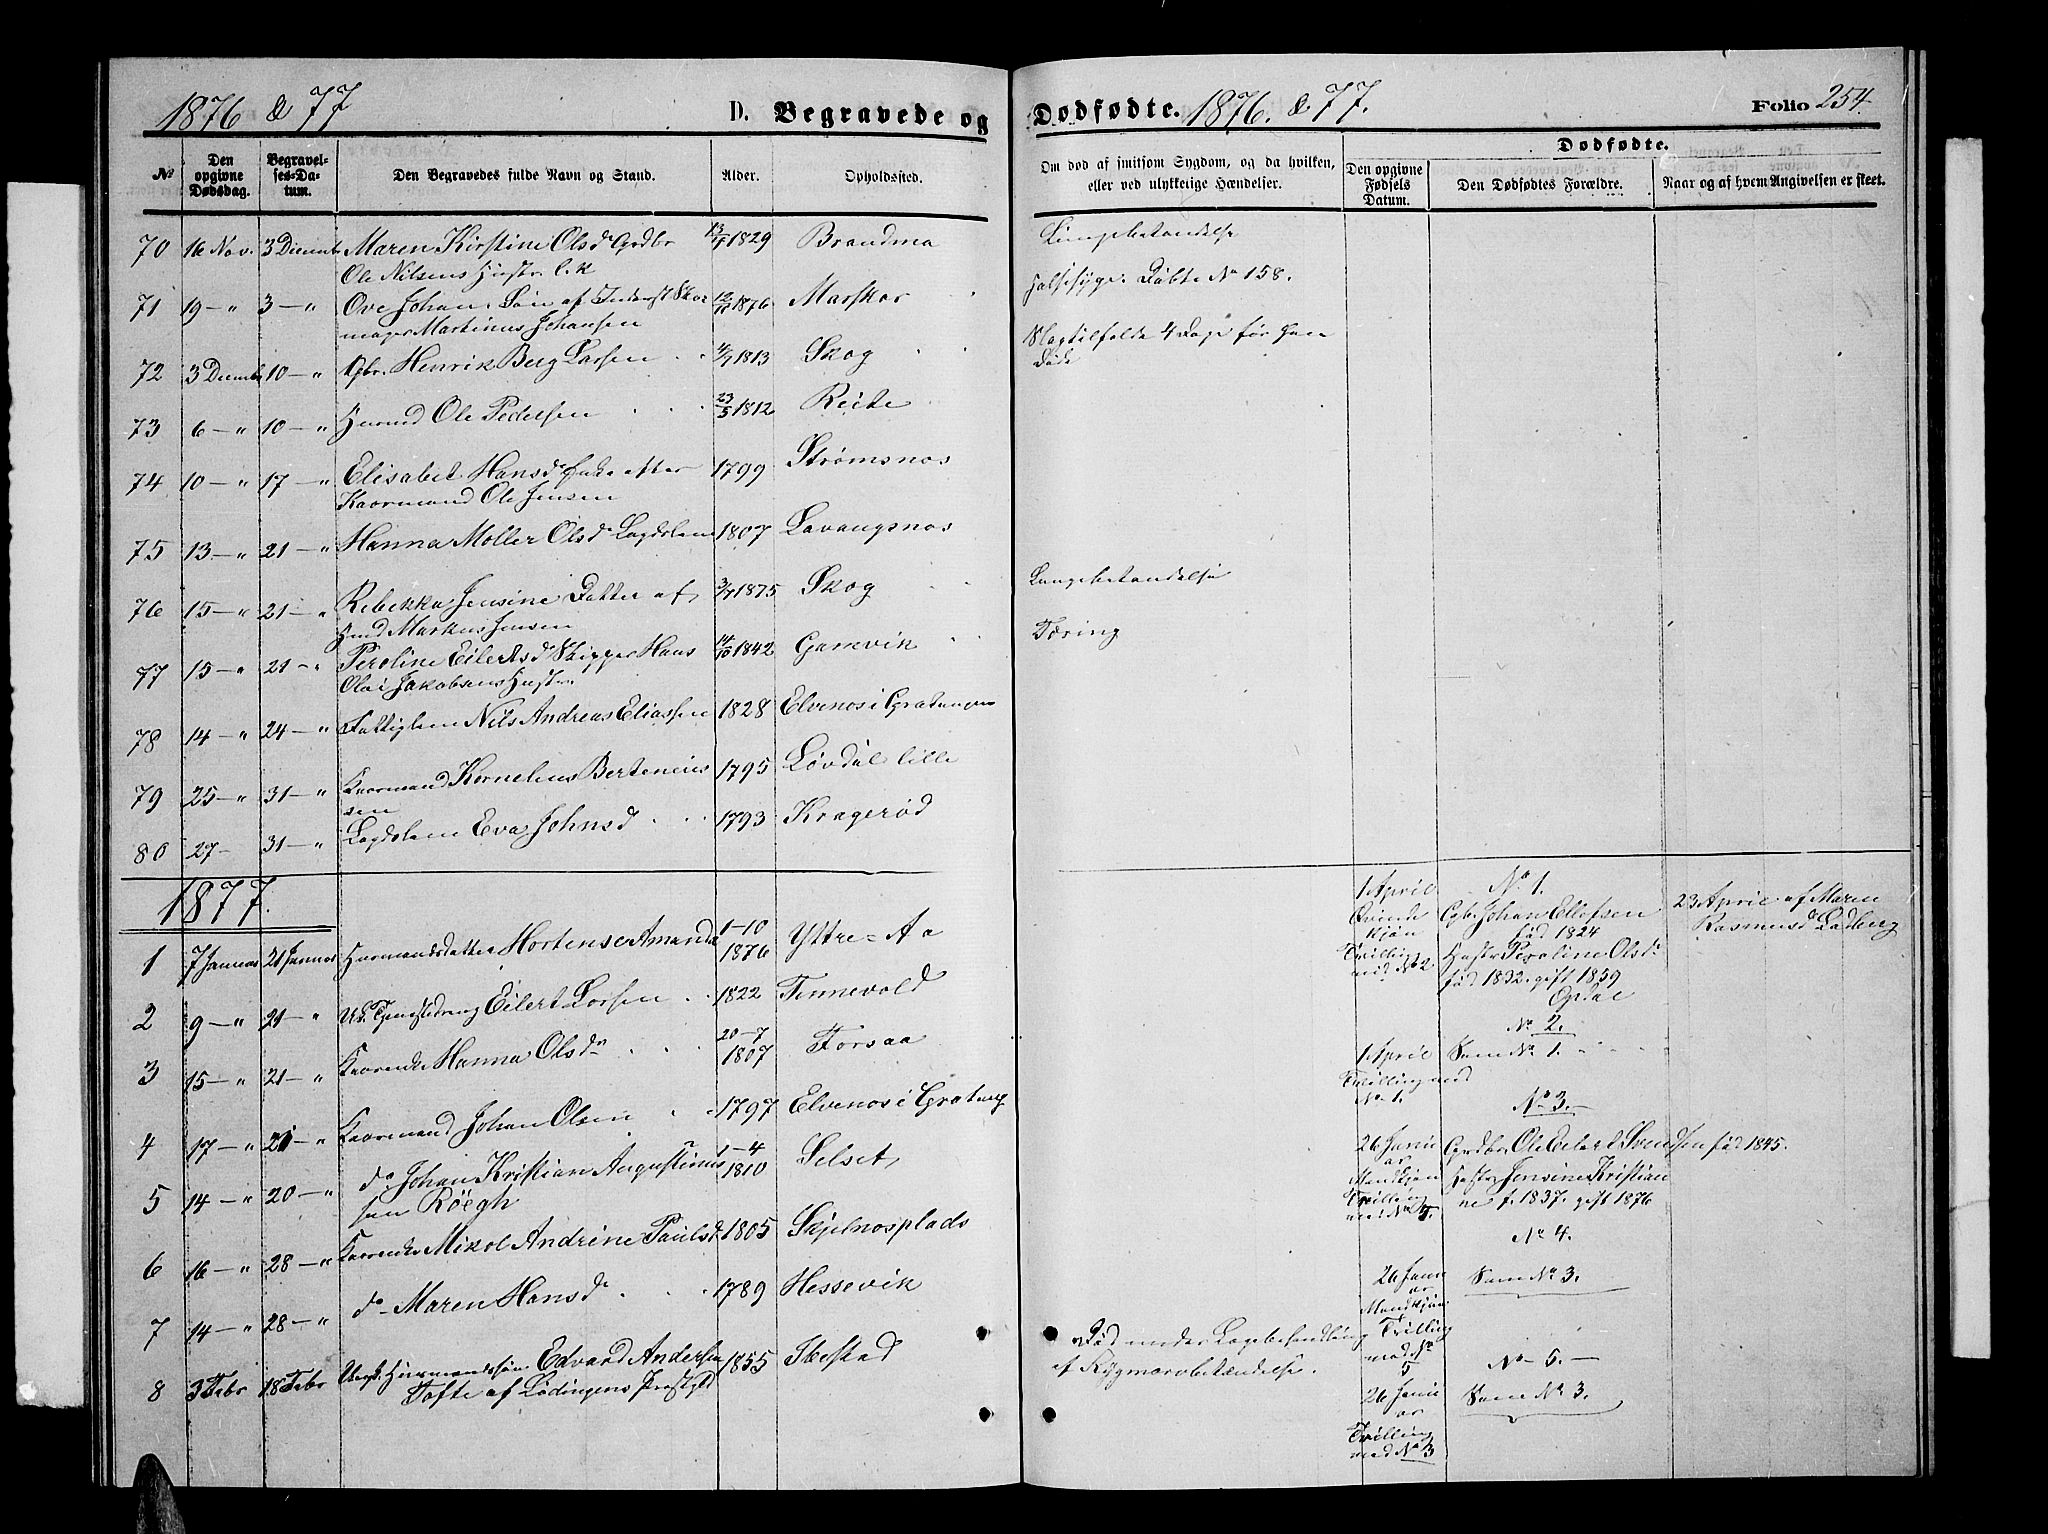 1876 & 77
D. Begravede og
Dødfødte. 1876. & 77.
Folio 254
No
Den opgivne Dødsdag.
Begravelses-Datum.
Den Begravedes fulde Navn og Stand.
Alder.
Opholdssted.
Om død af smitsom Sygdom, og da hvilken, eller ved ulykkelige Hændelser.
Dødfødte.
Den opgivne Fødsels Datum.
Den Dødfødtes Forældre.
Naar og af hvem Angivelsen er skeet.
70 16 Nov. 3 Decembr Maren Kirstine Olsd. Grdbr 1829 Brandma Lungebetændelse
Ole Nilsens Hustr.
71 19 – " 3 – " Ove Johan Søn af Inderst Sko 12/11 1876 Marskar Halssyge. Døbte No 158.
mager Martinus Johansen
72 3 Decembr 10 – " Gbr. Henrik Berg Larsen 4/7 1813 Skog Slagtilfælde 4 Dage før han
døde
73 6 – " 10 – " Husmd Ole Pedersen 23/5 1812 Reite
74 10 – " 17 – " Elisabet Hansd Enke efter 1799 Strømsnes
Kaarmand Ole Jensen
75 13 – " 21 – " Hanna Moller Olsd Lægdslem 1807 Lavangsnes
76 15 – " 21 – " Rebekka Jensine Datter af 3/7 1875 Skog Lungebetændelse
Husmd Markus Jensen
77 15 – " 21 – " Peroline Eilertsd Skipper Hans 14/10 1842 Gamvik Tæring
Olai Jakobsens Hustr.
78 14 – " 24 – " Fattiglem Nils Andreas Eliassen 1828 Elvenes i Gratangen
79 25 – " 31 – " Kaarmand Kornelius Berteneius 1795 Løvdal lille
sen
80 27 – 31 – " Lægdslem Eva Johnsd 1793 Kragerød
1877.
1 7 Januar 21 Januar Husmandsdatter Hortense Amanda 1–10 1876 Yttre-Aa
2 9 – " 21 – " Eilert Larsen 1822 Tennevold
3 15 – " 21 – " Kaarenke Hanna Olsdr 20–7 1807 Forsaa
4 17 – " 21 – " Kaarmand Johan Olsen 1797 Elvenes i Gratang
5 14 – " 20 – " do Johan Kristian Augustinus 1–4 1810 Selset
sen Röegh
6 16 – " 28 – " Kaarenke Mikol Andrine Paulsd 1805 Skjelnesplads
7 14 – " 28 – " do Maren Hansd 1789 Hessevik
8 3 Febr 18 Febr Ungk. Husmandssøn Edvard Andersen 1855 Ibestad Død under Lægebehandling
Tofte af Lødingens Prestgld af Rygmarvbetændelse.
1 April
Qvinde
kjøn
Tvilling
med No 2
No 1.
Gbr Johan Ellefsen
fød 1824
Hustr Peroline Olsdr
fød 1832. gift 1859
Opdal
23 April af Maren
Rasmusd Ladberg
No 2.
1 April
Tvilling med
No 1.
Som No 1.
No 3.
26 Janu
ar
Mandkjøn
Tvilling
med No 5.
Grdbr. Ole Eilert Svendsen fød 1845.
Hustr Jensine Kristian
ne f. 1837. gift 1876
No 4.
26 Janu
ar
Mandkjøn
Tvilling
med No
5
Som No 3.
No – 5. –
26 Janu
ar
Tvilling
med No 3
Som No 3.